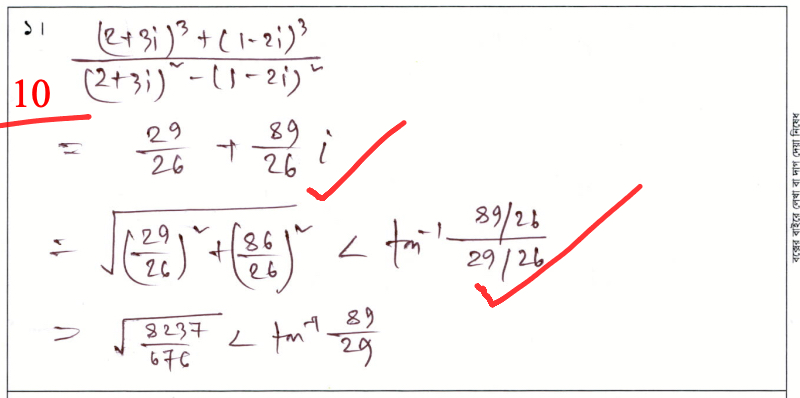 ১।
((2+3i)³ + (1-2i)³) / ((2+3i)² - (1-2i)²)
10
= 29/26 + 89/26 i
= √((29/26)² + (86/26)²) < tan⁻¹ (89/26)/(29/26)
⇒ √(8237/676) < tan⁻¹ 89/29
বক্সের বাইরে লেখা বা দাগ দেয়া নিষেধ